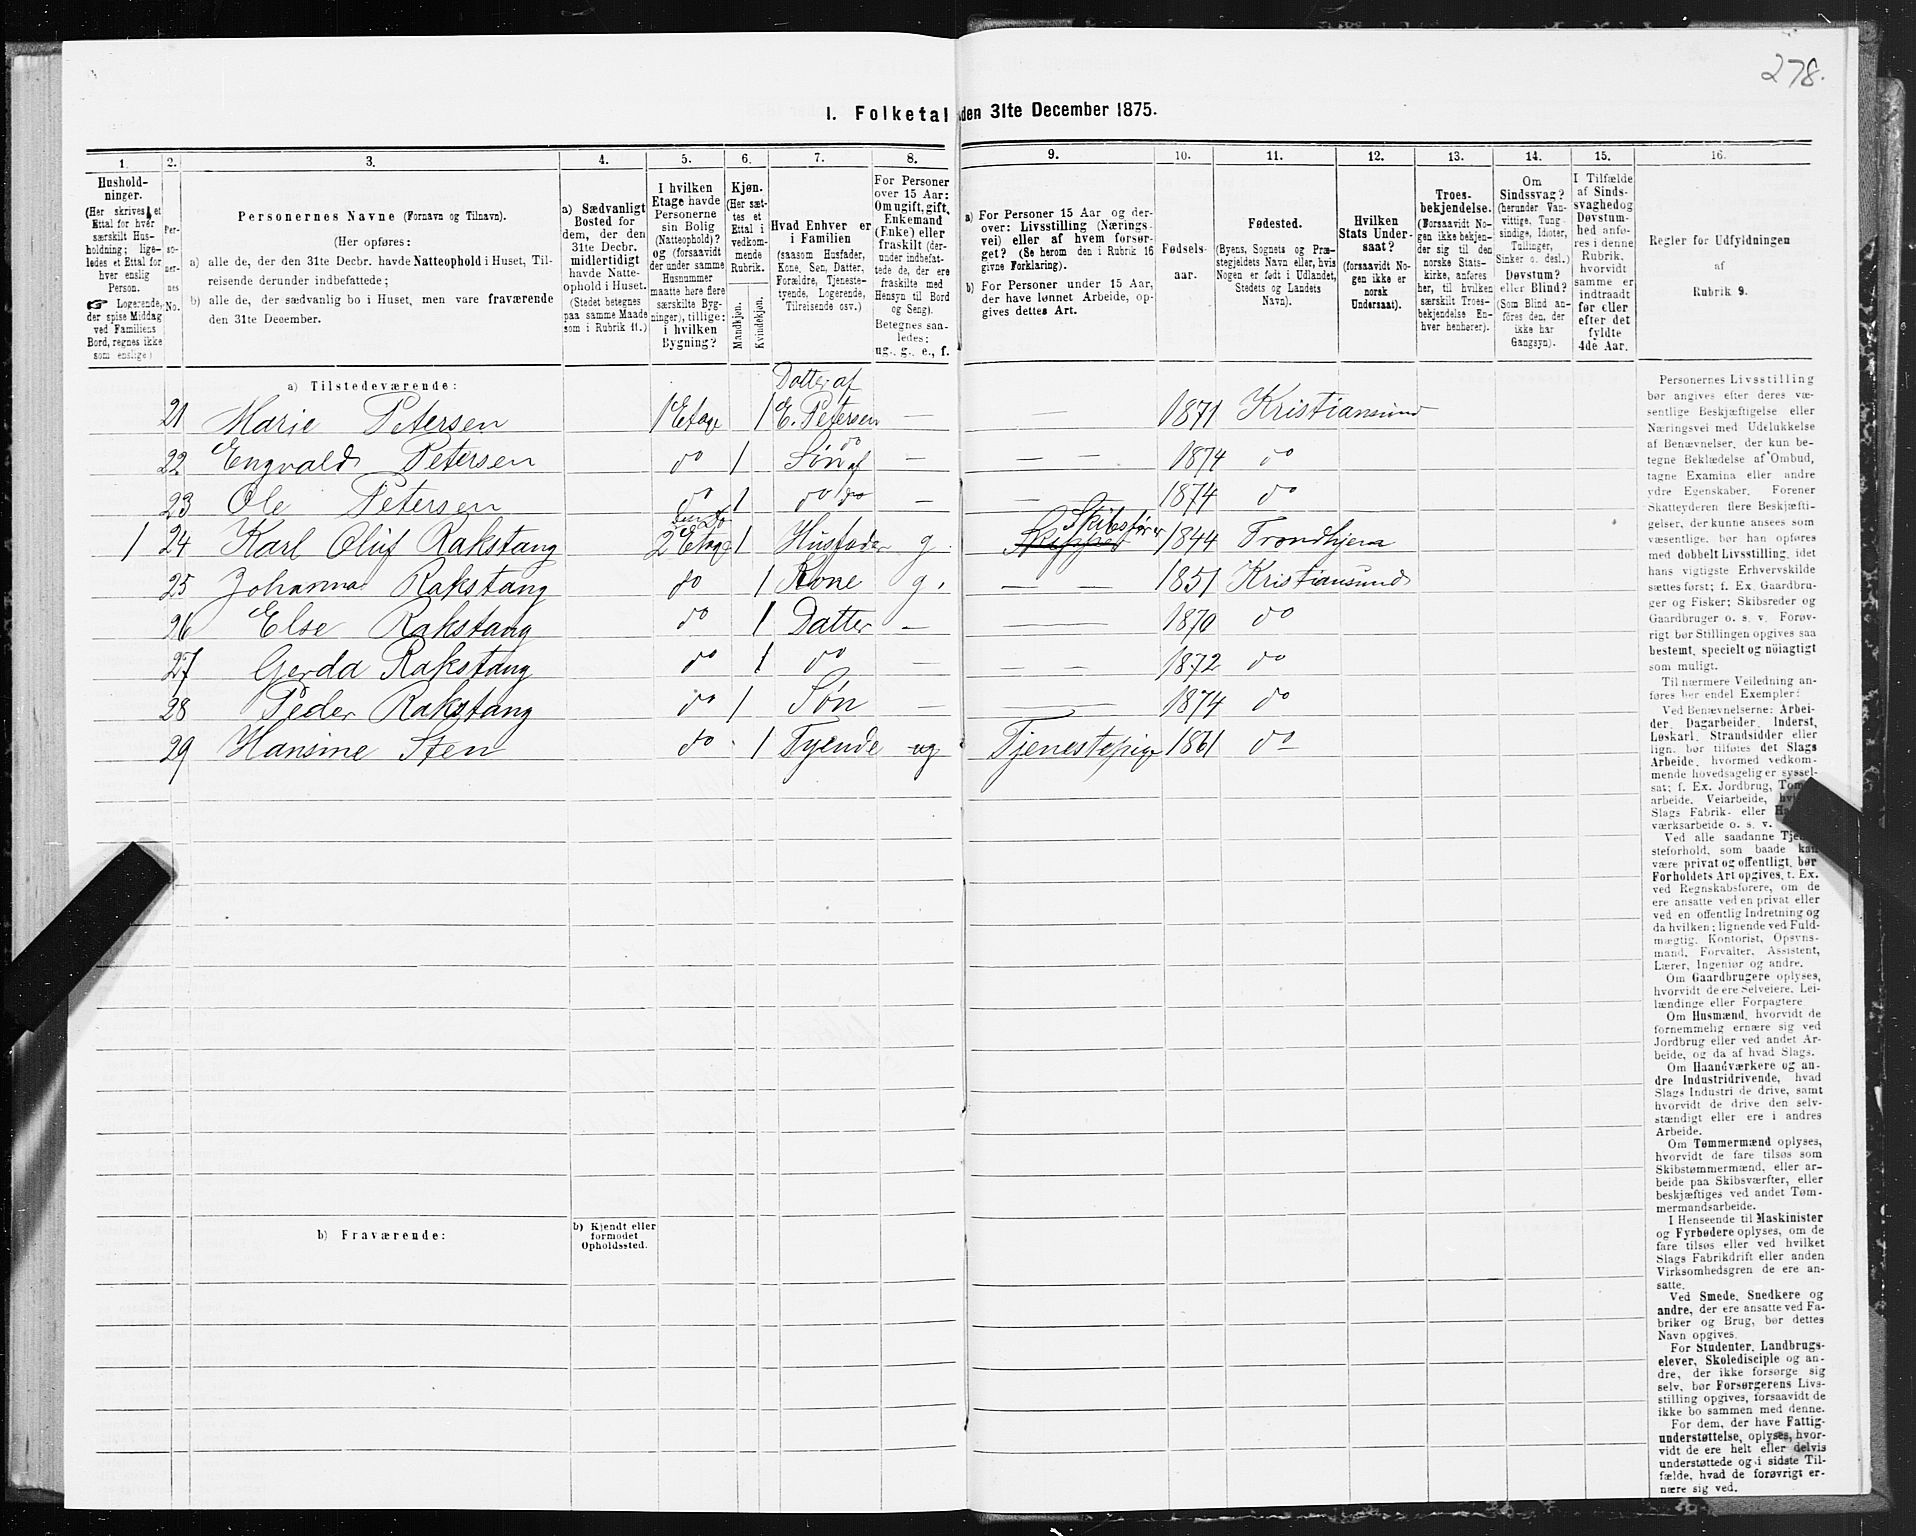 278.
I. Folketal den 31te December 1875.
1. 2. 3. 4. 5. 6. 7. 8. 9. 10. 11. 12. 13. 14. 15. 16.
Hushold-
ninger.
(Her skrives et
Ettal for hver
særskilt Hus-
holdning; lige-
ledes et Ettal for
hver enslig
Person.
☞ Logerende,
der spise Middag
ved Familiens
Bord, regnes ikke
som enslige.)
Per-
so-
ner-
nes
No.
Personernes Navne (Fornavn og Tilnavn).
(Her opføres:
a) alle de, der den 31te Decbr. havde Natteophold i Huset, Til-
reisende derunder indbefattede;
b) alle de, der sædvanlig bo i Huset, men vare fraværende
den 31te December.
a) Sædvanligt
Bosted for
dem, der den
31te Decbr.
midlertidigt
havde Natte-
ophold i Huset.
(Stedet betegnes
paa samme Maade
som i Rubrik 11.)
I hvilken
Etage havde
Personerne
sin Bolig
(Natteophold)?
og (forsaavidt
der under samme
Husnummer
maatte høre flere
særskilte Byg-
ninger), tillige:
i hvilken
Bygning?
Kjøn.
(Her sæt-
tes et
Ettal i
vedkom-
mende
Rubrik.
Mandkjøn.
Kvindekjøn.
Hvad Enhver er
i Familien
(saasom Husfader,
Kone, Søn, Datter,
Forældre, Tjeneste-
tyende, Logerende,
Tilreisende osv.)
For Personer
over 15 Aar:
Om ugift, gift,
Enkemand
(Enke) eller
fraskilt (der-
under indbefat-
tede de, der ere
fraskilte med
Hensyn til Bord
og Seng).
Betegnes saa-
ledes:
ug., g., e., f.
a) For Personer 15 Aar og der-
over: Livsstilling (Nærings-
vei) eller af hvem forsør-
get? (Se herom den i Rubrik 16
givne Forklaring).
b) For Personer under 15 Aar,
der have lønnet Arbeide, op-
gives dettes Art.
Fødsels-
aar.
Fødested.
(Byens, Sognets og Præ-
stegjeldets Navn eller, hvis
Nogen er født i Udlandet,
Stedets og Landets
Navn).
Hvilken
Stats Under-
saat?
(forsaavidt No-
gen ikke er
norsk
Undersaat).
Troes-
bekjendelse.
(Forsaavidt No-
gen ikke bekjen-
der sig til den
norske Stats-
kirke, anføres
her, til hvilken
særskilt Troes-
bekjendelse En-
hver henhører).
Om
Sindssvag?
(herunder Van-
vittige, Tung-
sindige, Idioter,
Tullinger,
Sinker o. desl.)
Døvstum?
eller Blind?
(Som Blind an-
føres den, der
ikke har
Gangsyn).
I Tilfælde
af Sinds-
svaghed og
Døvstum-
hed anfø-
res i denne
Rubrik,
hvorvidt
samme er
indtraadt
før eller
efter det
fyldte
4de Aar.
Regler for Udfyldningen
af
Rubrik 9.
a) Tilstedeværende:
21 Marie Petersen 1 Etage 1 Datter af E. Petersen — — — 1871 Kristiansund
22 Engvald Petersen do 1 Søn af do — — — 1874 do
23 Ole Petersen do 1 do do — — — 1874 do
1 24 Karl Oluf Rakstang 2 Etage 1 Husfader g. Skipper Skibsfører 1844 Trondhjem
25 Johanna Rakstang do 1 Kone g. — — 1851 Kristiansund
26 Else Rakstang do 1 Datter — — — 1870 do
27 Gerda Rakstang do 1 do — — — 1872 do
28 Peder Rakstang do 1 Søn — — — 1874 do
29 Hansine Sten do 1 Tyende ug Tjenestepige 1861 do
b) Fraværende:
b) Kjendt eller
formodet
Opholdssted.
Personernes Livsstilling
bør angives efter deres væ-
sentlige Beskjæftigelse eller
Næringsvei med Udelukkelse
af Benævnelser, der kun be-
tegne Beklædelse af Ombud,
tagne Examina eller andre
ydre Egenskaber. Forener
Skatteyderen flere Beskjæfti-
gelser, der kunne ansees som
væsentlige, bør han opføres
med dobbelt Livsstilling, idet
hans vigtigste Erhvervskilde
sættes først; f. Ex. Gaardbru-
ger og Fisker; Skibsreder og
Gaardbruger o. s. v. Forøv-
rigt bør Stillingen opgives saa
bestemt, specielt og nøiagtigt
som muligt.
Til nærmere Veiledning an-
føres her endel Exempler:
Ved Benævnelserne: Arbei-
der, Dagarbeider, Inderst,
Løskarl, Strandsidder eller
lign. bør tilføies det Slags
Arbeide, hvormed vedkom-
mende hovedsagelig er syssel-
sat; f. Ex. Jordbrug, Tom-
arbeide, Veiarbeide, hvi
Slags Fabrik- eller Ha
værksarbeide o. s. v.
Ved alle saadanne Tje
steforhold, som baade kan
være privat og offentligt, bør
Forholdets Art opgives, t. Ex.
ved Regnskabsførere, om de
ere ansatte ved en privat eller
ved en offentlig Indretning og
da hvilken; lignende ved Fuld-
mægtig, Kontorist, Opsyns-
mand, Forvalter, Assistent,
Lærer, Ingeniør og andre.
Om Gaardbrugere oplyses,
hvorvidt de ere Selveiere, Lei-
lændinge eller Forpagtere
Om Husmænd, hvorvidt de
fornemmelig ernære sig ved
Jordbrug eller ved andet Ar-
beide, og da af hvad Slags.
Om Haandværkere og an-
dre Industridrivende, hvad
Slags Industri de drive, samt
hvorvidt de drive den selv-
stændigt eller ere i andres
Arbeide.
Om Tømmermænd oplyses,
hvorvidt de fare tilsøs som
Skibstømmermænd, eller ar-
beide paa Skibsværfter, eller
beskjæftiges ved andet Tøm-
mermandsarbeide.
I Henseende til Maskinister
og Fyrbødere oplyses, om de
fare tilsøs eller ved hvilket
Slags Fabrikdrift eller anden
Virksomhedsgren de ere an-
satte.
Ved Smede, Snedkere og
andre, der ere ansatte ved Fa-
briker og Brug, bør dettes
Navn opgives.
For Studenter, Landbrugs-
elever, Skoledisciple og an-
dre, der ikke forsørge sig
selv, bør Forsørgerens Livs-
stilling opgives, forsaavidt de
ikke bo sammen med denne.
For dem, der have Fattig-
understøttelse, oplyses, hvor-
vidt de ere helt eller delvis
understøttede og i sidste Til-
fælde, hvad de forøvrigt er-
nære sig ved.